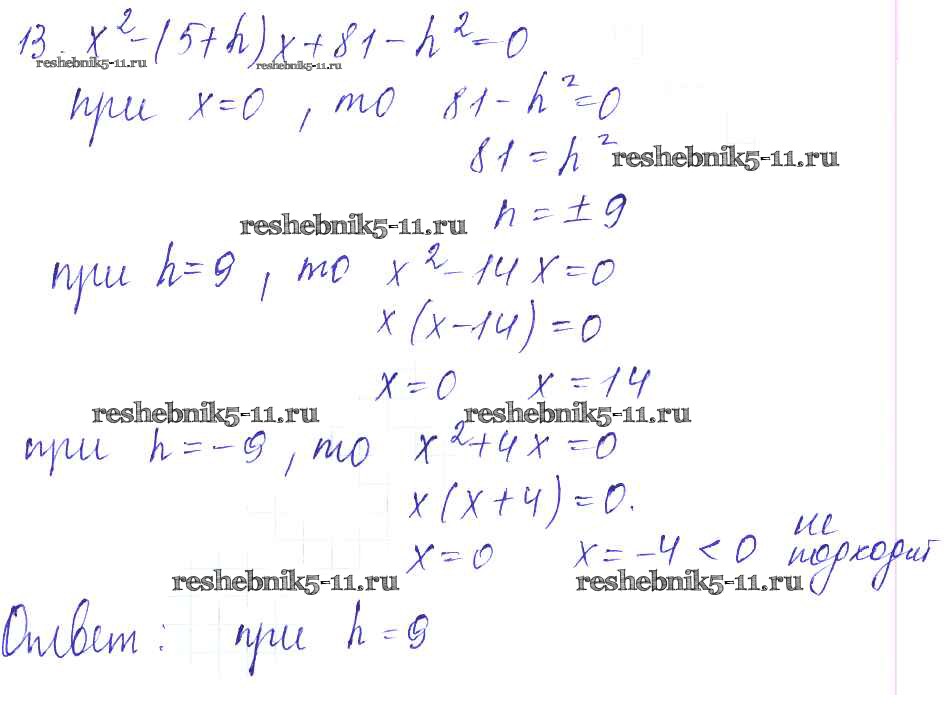 13. x² - (5+h)x + 81 - h² = 0
reshebnik5-11.ru reshebnik5-11.ru
при x=0, то 81 - h² = 0
81 = h² reshebnik5-11.ru
reshebnik5-11.ru h = ± 9
при h=9, то x² - 14x = 0
x(x-14) = 0
x=0 x=14
reshebnik5-11.ru reshebnik5-11.ru
при h=-9, то x² + 4x = 0
x(x+4) = 0.
x=0 x=-4<0 не подходит
reshebnik5-11.ru reshebnik5-11.ru
Ответ: при h=9